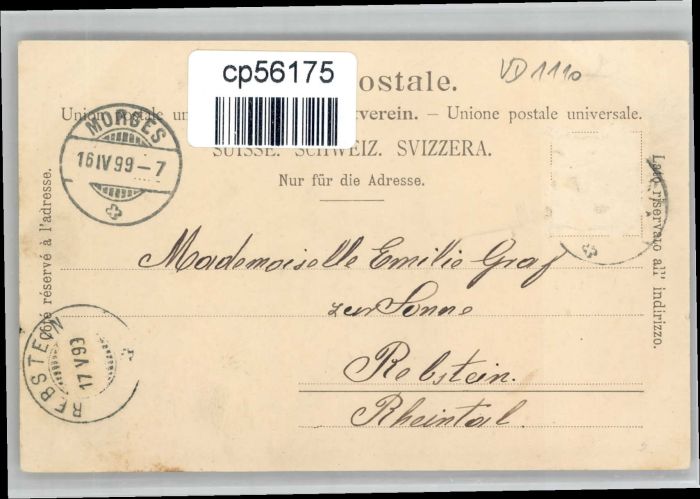 cp56175
ostale.
VD1110
Union postale un tverein. – Unione postale universale.
SUISSE. SCHWEIZ. SVIZZERA.
Nur für die Adresse.
MORGES
16 IV 99 – 7
Côté réservé à l'adresse.
Lato riservato all' indirizzo.
Mademoiselle Emilie Graf
zur Sonne
Rebstein.
Rheintal.
REBSTEIN
17 V 93